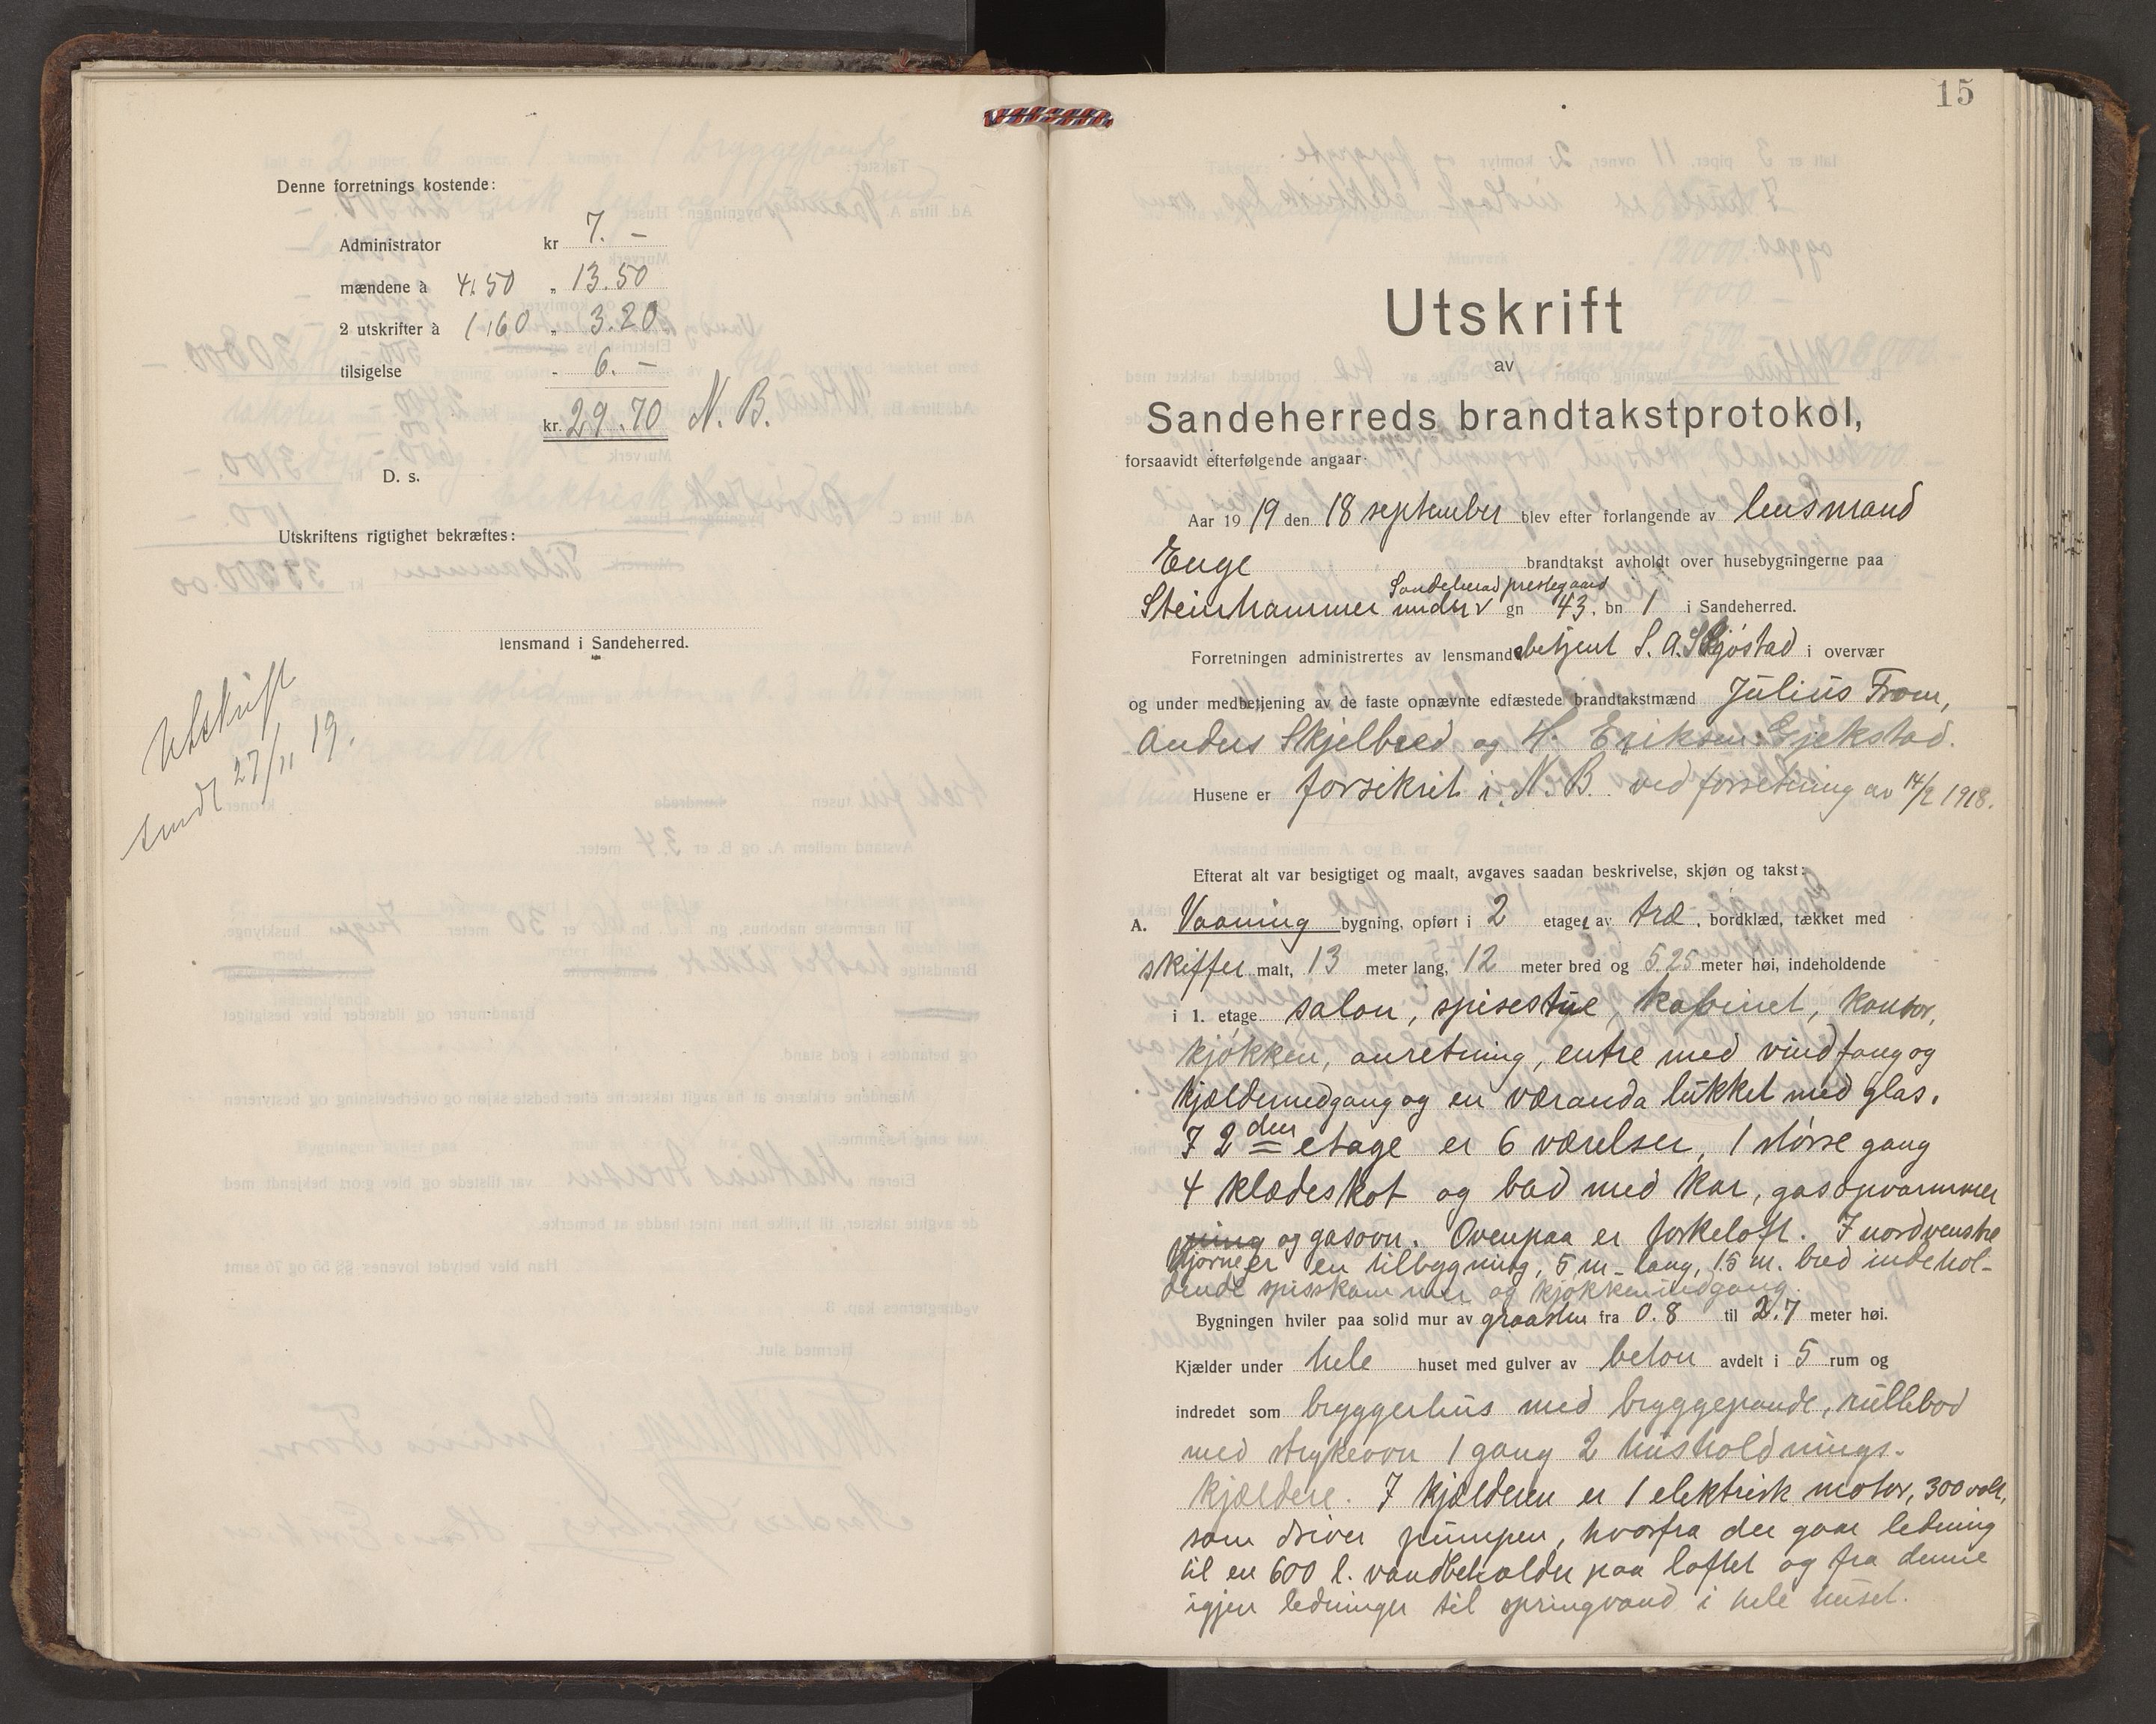 Denne forretnings kostende:
Administrator kr 7. –
mændene à 4.50 „ 13.50
2 utskrifter à 1.60 „ 3.20
tilsigelse - 6. –
kr. 29.70 N. B.
D. s.
Utskriftens rigtighet bekræftes:
lensmand i Sandeherred.
Utskrift
sendt 27/11 19.
15
Utskrift
av
Sandeherreds brandtakstprotokol,
forsaavidt efterfølgende angaar:
Aar 1919 den 18 september blev efter forlangende av lensmand
Enge brandtakst avholdt over husebygningerne paa
Sandeherad prestegaard
Steinhammer under v gn 43, bn 1 i Sandeherred.
Forretningen administrertes av lensmandsbetjent S. A. i overvær
og under medbetjening av de faste opnævnte edfæstede brandtakstmænd Julius From,
Anders Skjelbred og H. Eriksen Gjekstad.
Husene er forsikret i N. B. ved forretning av 14/2 1918.
Efterat alt var besigtiget og maalt, avgaves saadan beskrivelse, skjøn og takst:
A. Vaaning bygning, opført i 2 etager av træ, bordklæd, tækket med
skiffer malt, 13 meter lang, 12 meter bred og 5.25 meter høi, indeholdende
i 1. etage salon, spisestue, kabinet, kontor,
kjøkken, anretning, entre med vindfang og
kjældernedgang og en væranda lukket med glas.
I 2den etage er 6 værelser, 1 større gang
4 klædeskot og bad med kar, gasopvarmmer
og gasovn. Ovenpaa er tørkeloft. I nordvenstre
hjørne er en tilbygning, 5 m lang, 1.5 m. bred indehol-
dende spisskammer og kjøkkenindgang.
Bygningen hviler paa solid mur av graasten fra 0.8 til 2.7 meter høi.
Kjælder under hele huset med gulver av beton avdelt i 5 rum og
indredet som bryggerhus med bryggepande, rullebod
med strykeovn 1 gang 2 husholdnings-
kjældere. I kjælderen er 1 elektrisk motor, 300 volt,
som driver pumpen, hvorfra der gaar ledning
til en 600 l. vandbeholder paa loftet og fra denne
igjen ledninger til springvand i hele huset.